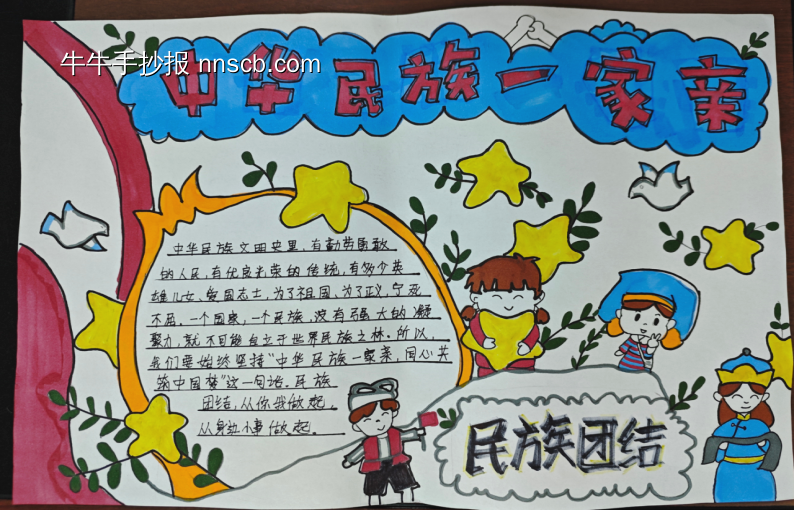 牛牛手抄报 nnscb.com
中华民族一家亲
中华民族文明史里,有勤劳勇敢
的人民,有优良光荣的传统,有多少英
雄儿女、爱国志士,为了祖国、为了正义,宁死
不屈。一个国家,一个民族,没有强大的凝
聚力,就不可能自立于世界民族之林。所以,
我们要始终坚持“中华民族一家亲,同心共
筑中国梦”这一句话。民族
团结,从你我做起,
从身边小事做起。
民族团结